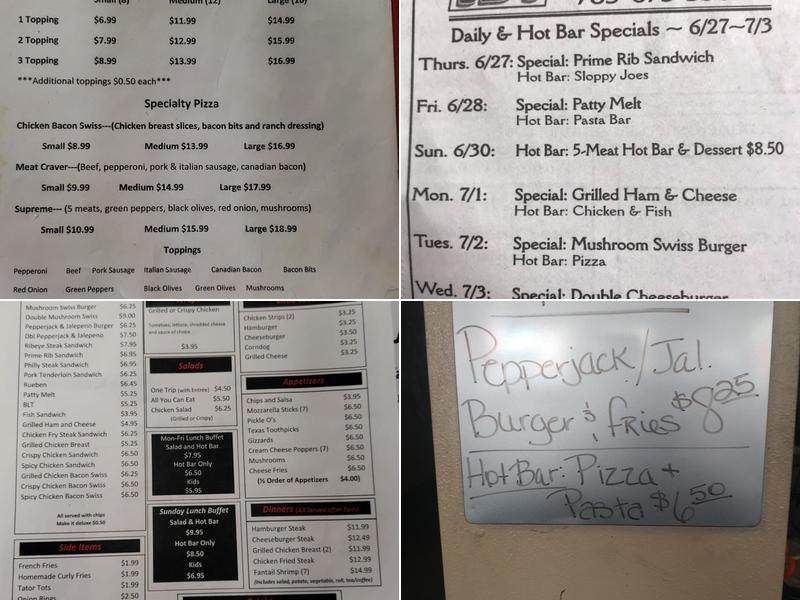 Small (8) Medium (12) Large (16)
1 Topping $6.99 $11.99 $14.99
2 Topping $7.99 $12.99 $15.99
3 Topping $8.99 $13.99 $16.99
***Additional toppings $0.50 each***
Specialty Pizza
Chicken Bacon Swiss---(Chicken breast slices, bacon bits and ranch dressing)
Small $8.99 Medium $13.99 Large $16.99
Meat Craver---(Beef, pepperoni, pork & italian sausage, canadian bacon)
Small $9.99 Medium $14.99 Large $17.99
Supreme--- (5 meats, green peppers, black olives, red onion, mushrooms)
Small $10.99 Medium $15.99 Large $18.99
Toppings
Pepperoni Beef Pork Sausage Italian Sausage Canadian Bacon Bacon Bits
Red Onion Green Peppers Black Olives Green Olives Mushrooms
Daily & Hot Bar Specials ~ 6/27~7/3
Thurs. 6/27: Special: Prime Rib Sandwich
Hot Bar: Sloppy Joes
Fri. 6/28: Special: Patty Melt
Hot Bar: Pasta Bar
Sun. 6/30: Hot Bar: 5-Meat Hot Bar & Dessert $8.50
Mon. 7/1: Special: Grilled Ham & Cheese
Hot Bar: Chicken & Fish
Tues. 7/2: Special: Mushroom Swiss Burger
Hot Bar: Pizza
Wed. 7/3: Special: Double Cheeseburger
Mushroom Swiss Burger $6.25
Double Mushroom Swiss $9.00
Pepperjack & Jalepeno Burger $6.25
Dbl Pepperjack & Jalepeno $7.50
Ribeye Steak Sandwich $7.95
Prime Rib Sandwich $6.95
Philly Steak Sandwich $6.95
Pork Tenderloin Sandwich $6.25
Rueben $6.45
Patty Melt $5.25
BLT $5.25
Fish Sandwich $3.95
Grilled Ham and Cheese $4.95
Chicken Fry Steak Sandwich $6.25
Grilled Chicken Breast $5.25
Crispy Chicken Sandwich $6.50
Spicy Chicken Sandwich $6.50
Grilled Chicken Bacon Swiss $6.25
Crispy Chicken Bacon Swiss $6.50
Spicy Chicken Bacon Swiss $6.50
All served with chips
Make it deluxe $0.50
Side Items
French Fries $1.99
Homemade Curly Fries $1.99
Tator Tots $1.99
Onion Rings $2.50
Grilled or Crispy Chicken
Tomatoes, lettuce, shredded cheese
and sauce of choice
$3.95
Salads
One Trip (with Entrée) $4.50
All You Can Eat $5.50
Chicken Salad $6.25
(Grilled or Crispy)
Mon-Fri Lunch Buffet
Salad and Hot Bar
$7.95
Hot Bar Only
$6.50
Kids
$5.95
Sunday Lunch Buffet
Salad & Hot Bar
$9.95
Hot Bar Only
$8.50
Kids
$6.95
Chicken Strips (2) $3.25
Hamburger $3.25
Cheeseburger $3.50
Corndog $3.25
Grilled Cheese $3.25
Appetizers
Chips and Salsa $3.95
Mozzarella Sticks (7) $6.50
Pickle O's $6.50
Texas Toothpicks $6.50
Gizzards $6.50
Cream Cheese Poppers (7) $6.50
Mushrooms $6.50
Cheese Fries $6.50
(½ Order of Appetizers $4.00)
Dinners (All Served after 5pm)
Hamburger Steak $11.99
Cheeseburger Steak $12.49
Grilled Chicken Breast (2) $11.99
Chicken Fried Steak $12.99
Fantail Shrimp (7) $14.99
(Includes salad, potato, vegetable, roll, tea/coffee)
Pepperjack/Jal.
Burger & fries $8.25
Hot Bar: Pizza +
Pasta $6.50